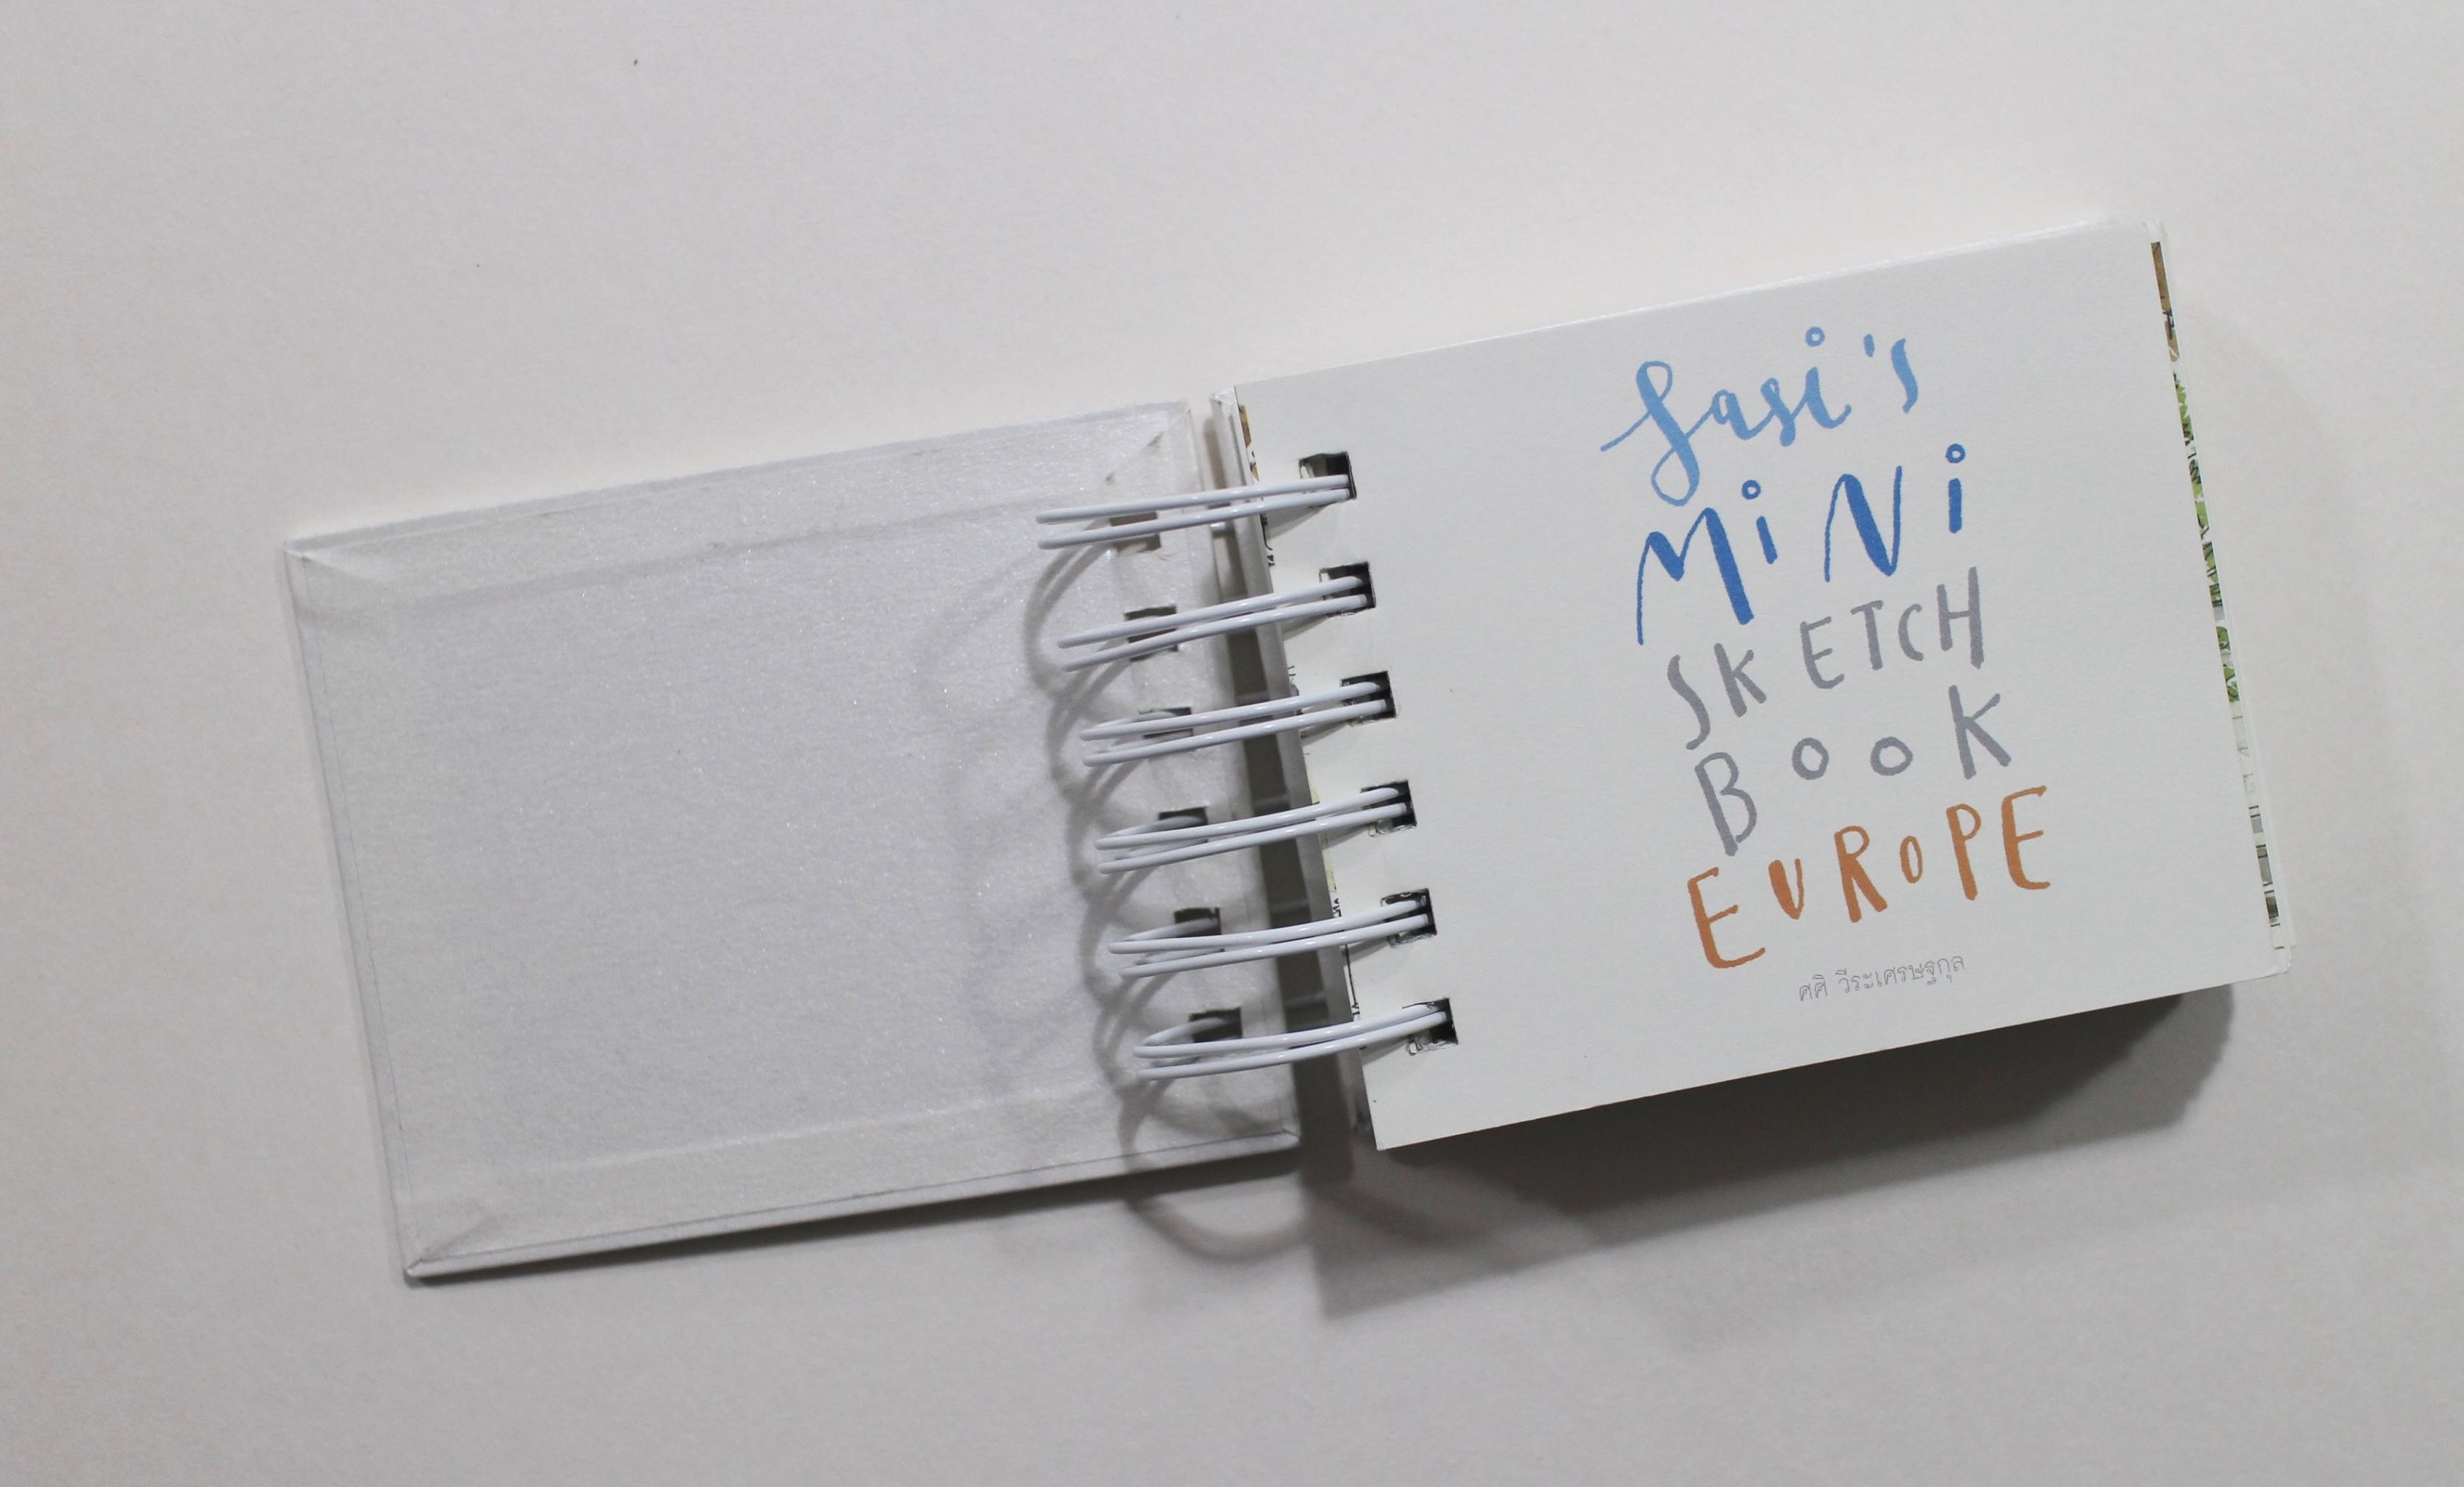 Sasi's
MiNi
SKETCH
BOOK
EUROPE
ศศิ วีระเศรษฐกุล